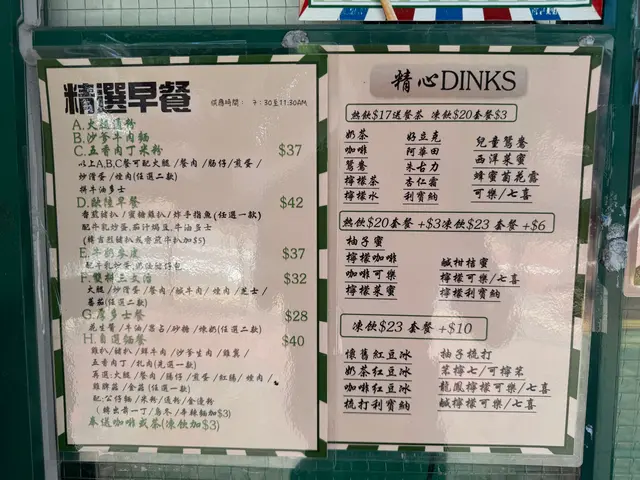 精選早餐
供應時間: 7:30至11:30AM
A.火腿通粉
B.沙爹牛肉麵
C.五香肉丁米粉 $37
以上A,B,C餐可配火腿/餐肉/腸仔/煎蛋/
炒滑蛋/煙肉(任選二款)
跟牛油多士
D.歐陸早餐 $42
香煎豬扒/蜜糖雞扒/炸手指魚(任選一款)
配牛乳炒蛋,茄汁焗豆,牛油多士
(轉當煎豬扒或香煎牛扒加$5)
E.牛奶麥皮 $37
F.雙拼三文治 $32
火腿/炒滑蛋/餐肉/鹹牛肉/煙肉/芝士/
番茄(任選二款)
G.厚多士餐 $28
花生醬/牛油/果占/砂糖/煉奶(任選二款)
H.自選麵餐 $40
雞扒/豬扒/鮮牛肉/沙爹生肉/雞翼/
五香肉丁/扎肉(先選一款)
再選:火腿/餐肉/腸仔/煎蛋/紅腸/煙肉/
雞脾菇/金菇(任選一款)
配:公仔麵/米粉/通粉/金邊粉
(轉出前一丁/烏冬/辛辣麵加$3)
奉送咖啡或茶(凍飲加$3)
精心DINKS
熱飲$17送餐茶 凍飲$20套餐$3
奶茶 好立克 兒童鴛鴦
咖啡 阿華田 西洋菜蜜
鴛鴦 朱古力 蜂蜜菊花露
檸檬茶 杏仁霜 可樂/七喜
檸檬水 利賓納
熱飲$20套餐+$3凍飲$23 套餐+$6
柚子蜜
檸檬咖啡 鹹柑桔蜜
咖啡可樂 檸檬可樂/七喜
檸檬菜蜜 檸檬利賓納
凍飲$23 套餐+$10
懷舊紅豆冰 柚子梳打
奶茶紅豆冰 茉檸七/可檸茉
咖啡紅豆冰 龍鳳檸檬可樂/七喜
梳打利賓納 鹹檸檬可樂/七喜